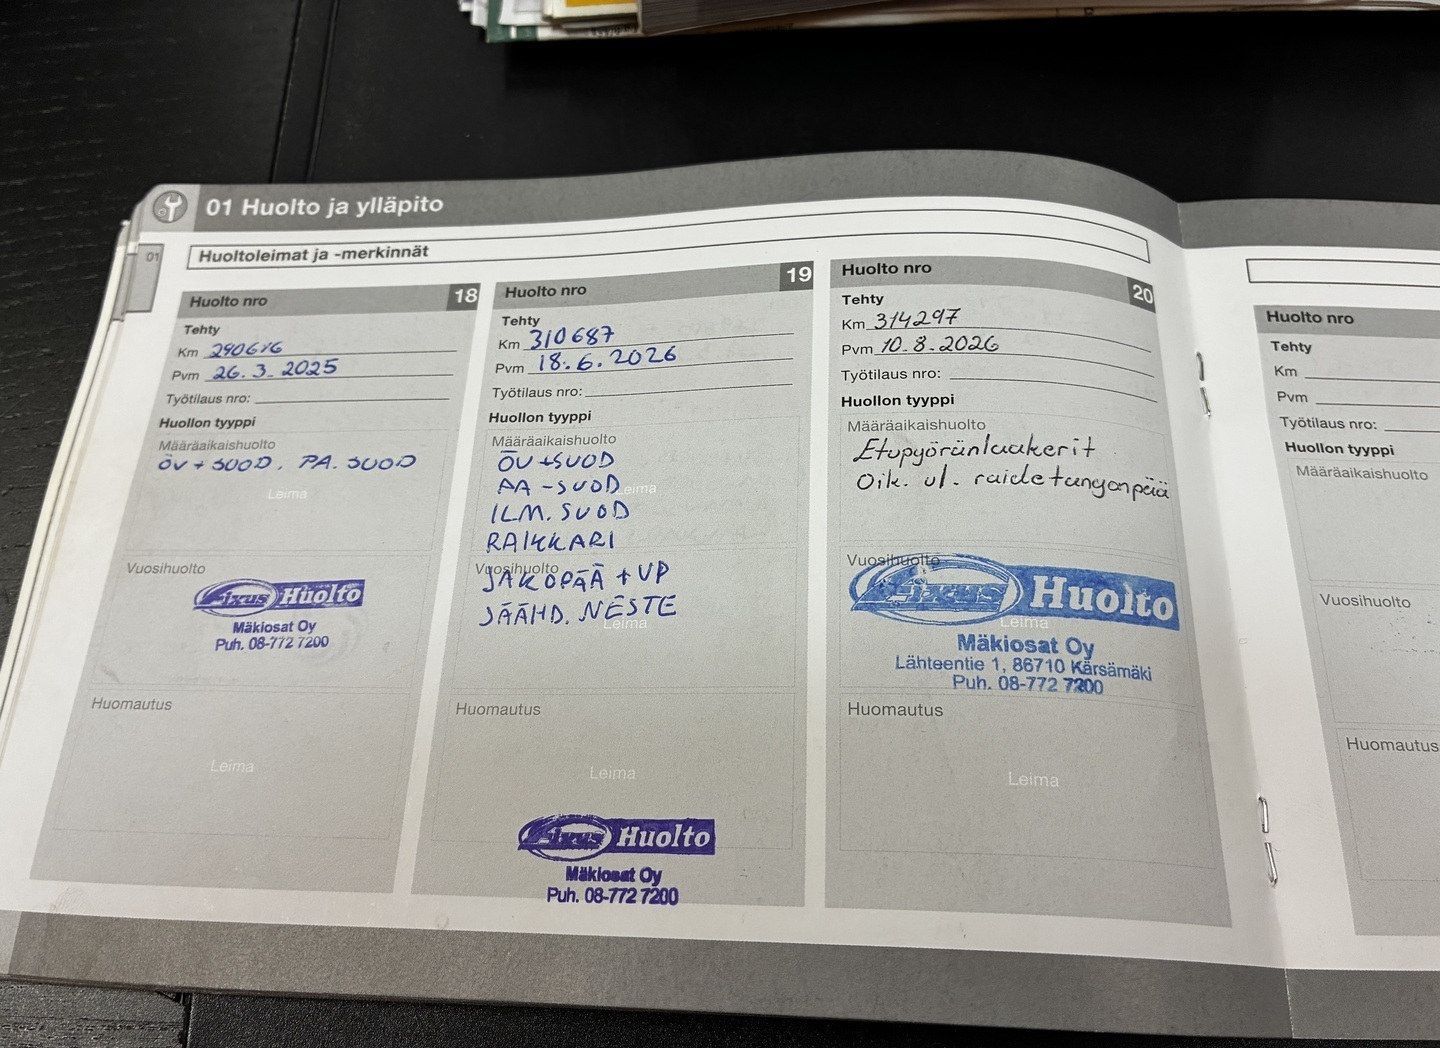 01 Huolto ja ylläpito
01
Huoltoleimat ja -merkinnät
Huolto nro 18
Tehty
Km 290616
Pvm 26.3.2025
Työtilaus nro:
Huollon tyyppi
Määräaikaishuolto
ÖV + SUOD. PA. SUOD
Leima
Vuosihuolto
Fixus Huolto
Mäkiosat Oy
Puh. 08-772 7200
Huomautus
Leima
Huolto nro 19
Tehty
Km 310687
Pvm 18.6.2026
Työtilaus nro:
Huollon tyyppi
Määräaikaishuolto
ÖV + SUOD
PA - SUOD
Leima
ILM. SUOD
RAIKKARI
Vuosihuolto
JAKOPÄÄ + VP
JÄÄHD. NESTE
Leima
Huomautus
Leima
Fixus Huolto
Mäkiosat Oy
Puh. 08-772 7200
Huolto nro 20
Tehty
Km 314297
Pvm 10.8.2026
Työtilaus nro:
Huollon tyyppi
Määräaikaishuolto
Etupyöränlaakerit
Oik. ul. raidetangonpää
Vuosihuolto
Fixus Huolto
Leima
Mäkiosat Oy
Lähteentie 1, 86710 Kärsämäki
Puh. 08-772 7200
Huomautus
Leima
Huolto nro
Tehty
Km
Pvm
Työtilaus nro:
Huollon tyyppi
Määräaikaishuolto
Vuosihuolto
Huomautus